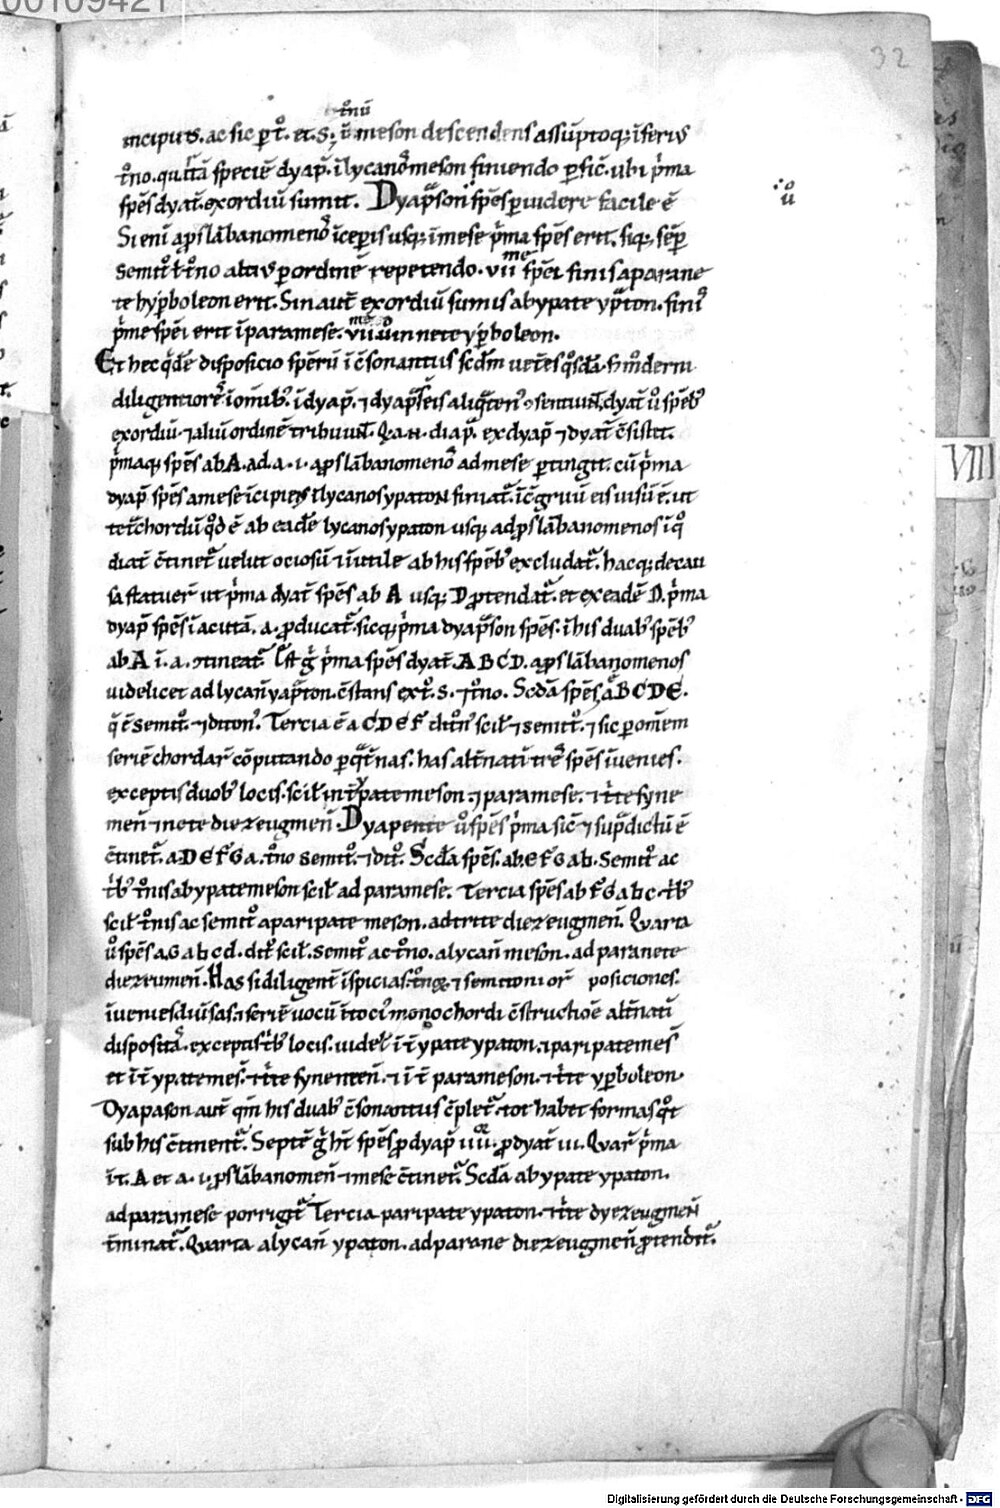 00109421
32
tonū
incipit᷒. ac sic ꝑ t̊. et .s. ū meson descendens assūptoq; īferi᷒
t̊no. quartā speciē dyap̄. ī lycano meson finiendo ꝑfic̄. ubi p̍ma
spēs dyat̄. exordiū sumit. Dyapason spēs ꝑuidere facile ē
Si eni a ꝓslābanomeno īceperis usq; ī mese p̍ma spēs erit. sicq; sēꝑ
semit̊ l t̊no alti᷒ ꝑ ordinē repetendo. vii me spēi finis a parane
te hyꝑboleon erit. Sin aut̄ exordiū sumis ab ypate ypaton. finis
p̍me spēi erit ī paramese. vii me ū in nete yꝑboleon.
Et hec q̍dē disposicio spērū ī c̄sonantiis scd̄m ueteres
diligentiorē ī omīb᷒. ī dyap̄. ⁊ dyapason dyat̄ ů spēb᷒
exordiū ⁊ aliū ordinē tribuunt. diap̄. ex dyap̄ ⁊ dyat̄ c̄sistit.
p̍maq; spēs ab A. ad .a. .i. a ꝓslābanomeno ad mese ꝑtingit. cū p̍ma
dyap̄ spēs a mese īcipiens ī lycanos ypaton finiat᷑. īc̄gruū eis uisū ē. ut
tet̄chordū q̊d ē ab eadē lycanos ypaton usq; ad ꝓslābanomenos ī q̊
diat̄ c̄tinet᷑ uelut ociosū ⁊ īutile ab his spēb᷒ excludat᷑. hacq; de cau
sa statuer̄ ut p̍ma dyat̄ spēs ab A usq; D ꝓtendat᷑. et ex eadē D. p̍ma
dyap̄ spēs ī acutā .a. ꝓducat᷑. sicq; p̍ma dyapason spēs. ī his duab᷒ spēb᷒
ab A ī .a. ↄtineat᷑. Est g̊ p̍ma spēs dyat̄. A B C D. a ꝓslābanomenos
uidelicet ad lycan̄ yapton. c̄stans ex t̊. s. ⁊ t̊no. Scd̄a spēs. a B C D E.
q̄ ē semit̊. ⁊ diton᷒. Tercia ē a C D E F dit̊n᷒ scil̄ ⁊ semit̊. ⁊ sic ꝑ om̄em
seriē chordar̄ cōputando ꝑ q̄t̄nas. has alt̄natī tres spēs īuenies.
exceptis duob᷒ locis. scil̄ in t̄ ypate meson. ⁊ paramese. ⁊ t̍te syne
men̄ ⁊ nete diezeugmen̄. Dyapente ů spēs p̍ma sic̄ ⁊ sup̄dictū ē
c̄tinet᷑. a D E F G a. t̊no semit̊. ⁊ dit̊. Scd̄a spēs. ab. E F G a b. Semit̊ ac
t̍b᷒ t̊nis ab ypate meson scil̄ ad paramese. Tercia spēs ab F G a b c. t̍b᷒
scil̄ t̊nis ac semit̊ a paripate meson. ad trite diezeugmen̄. Quarta
ů spēs a G a b c d. dit̊ scil̄. semit̊ ac t̊no. a lycan̄ meson. ad paranete
diezeumen̄. Has si diligent̄ īspicias. ⁊ semitonior̄ posiciones.
īuenies diuisas. ⁊ seriē uocū monochordi c̄structiōe alt̄natī
disposita. exceptis t̍b᷒ locis. uidel̄ ī t̄ ypate ypaton. ⁊ paripate mes̄
et ī t̄ ypate mes̄. ⁊ t̍te synemen̄. ⁊ ī t̄ parameson. ⁊ t̍te yꝑboleon.
Dyapason aut̄ qm̄ his duab᷒ c̄sonantiis c̄plet᷑. tot habet formas q̊t
sub his c̄tinent᷑. Septē g̊ h̄t spēs ꝓ dyap̄ iiii. ꝓ dyat̄ iii. Quar̄ p̍ma
ī t̄. A et a. .i. ꝓslābanomen̄ ⁊ mese c̄tinet᷑. Scd̄a ab ypate ypaton.
ad paramese porrigit᷑ Tercia paripate ypaton. ⁊ t̍te dyezeugmen̄
t̄minat᷑. Quarta a lycan̄ ypaton. ad parane diezeugmen̄ ꝓtendit᷑.
ů
VIII
Digitalisierung gefördert durch die Deutsche Forschungsgemeinschaft - DFG